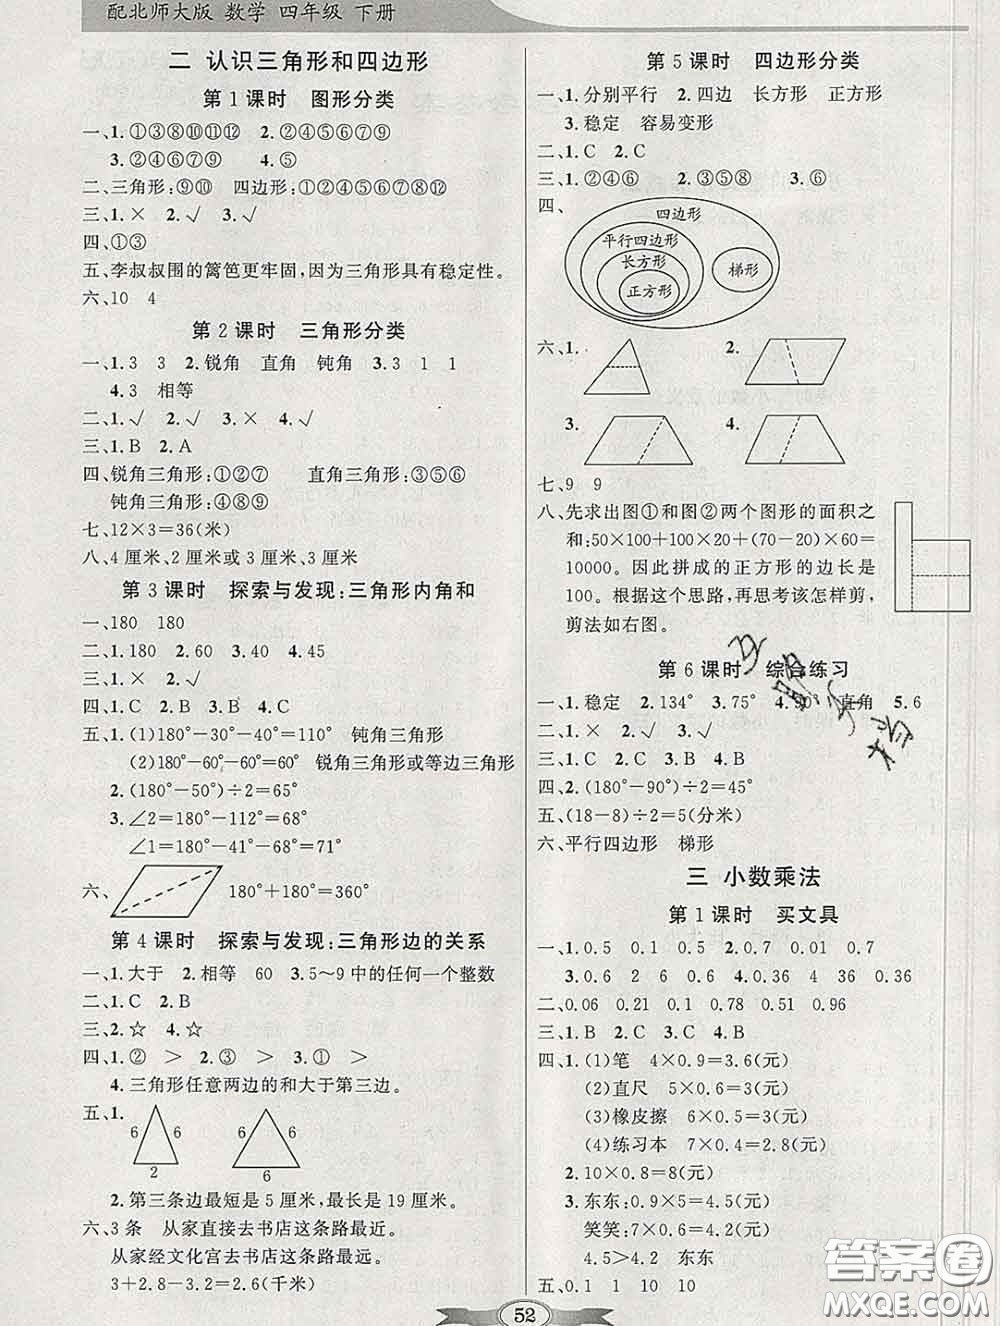 配北师大版 数学 四年级 下册
二 认识三角形和四边形
第1课时 图形分类
一、1.①③⑧⑩⑪⑫ 2.②④⑤⑥⑦⑨
3.②④⑥⑦⑨ 4.⑤
二、三角形:⑨⑩ 四边形:①⑤⑥⑦⑧⑫
三、1.× 2.√ 3.√
四、①③
五、李叔叔围的篱笆更牢固,因为三角形具有稳定性。
六、10 4
第2课时 三角形分类
一、1.3 3 2.锐角 直角 钝角 3.3 1 1
4.3 相等
二、1.√ 2.√ 3.× 4.√
三、1.B 2.A
四、锐角三角形:①②⑦ 直角三角形:③⑤⑥
钝角三角形:④⑧⑨
七、12×3=36(米)
八、4厘米、2厘米或3厘米、3厘米
第3课时 探索与发现:三角形内角和
一、180 180
二、1.180 2.60 3.40 4.45
三、1.× 2.√
四、1.C 2.B 3.B 4.C
五、1.(1)180°-30°-40°=110° 钝角三角形
(2)180°-60°-60°=60° 锐角三角形或等边三角形
2.(180°-50°)÷2=65°
3.∠2=180°-112°=68°
∠1=180°-41°-68°=71°
六、 180°+180°=360°
第4课时 探索与发现:三角形边的关系
一、1.大于 2.相等 60 3.5~9中的任何一个整数
二、1.C 2.B
三、2.☆ 4.☆
四、1.② > 2.③ > 3.① >
4.三角形任意两边的和大于第三边。
五、1.
6 6 6 6
2
2.第三条边最短是5厘米,最长是19厘米。
六、3条 从家直接去书店这条路最近。
从家经文化宫去书店这条路最远。
3+2.8-3.2=2.6(千米)
第5课时 四边形分类
一、1.分别平行 2.四边 长方形 正方形
3.稳定 容易变形
二、1.C 2.C
三、1.①②④⑥ 2.③⑤⑧ 3.⑥
四、
四边形
平行四边形
长方形
正方形
梯形
六、1. 2.
3. 4.
七、9 9
八、先求出图①和图②两个图形的面积之
和:50×100+100×20+(70-20)×60=
10000。因此拼成的正方形的边长是
100。根据这个思路,再思考该怎样剪,
剪法如右图。
第6课时 综合练习
一、1.稳定 2.134° 3.75° 4.90° 直角 5.6
二、1.× 2.√ 3.√
三、1.C 2.C 3.B 4.B
四、2.(180°-90°)÷2=45°
五、(18-8)÷2=5(分米)
六、平行四边形 梯形
三 小数乘法
第1课时 买文具
一、1.0.5 0.1 0.5 2.0.7 0.01 0.7
3.0.6 6 0.06 4.0.36 4 0.36 0.36
二、0.06 0.21 0.1 0.78 0.51 0.96
三、1.B 2.C 3.C 4.B
四、1.(1)笔 4×0.9=3.6(元)
(2)直尺 5×0.6=3(元)
(3)橡皮擦 6×0.5=3(元)
(4)练习本 7×0.4=2.8(元)
2.10×0.8=8(元)
3.东东:0.9×5=4.5(元)
笑笑:7×0.6=4.2(元)
4.5>4.2 东东
五、0.1 1 10 10
52
答案圈
MXQE.COM